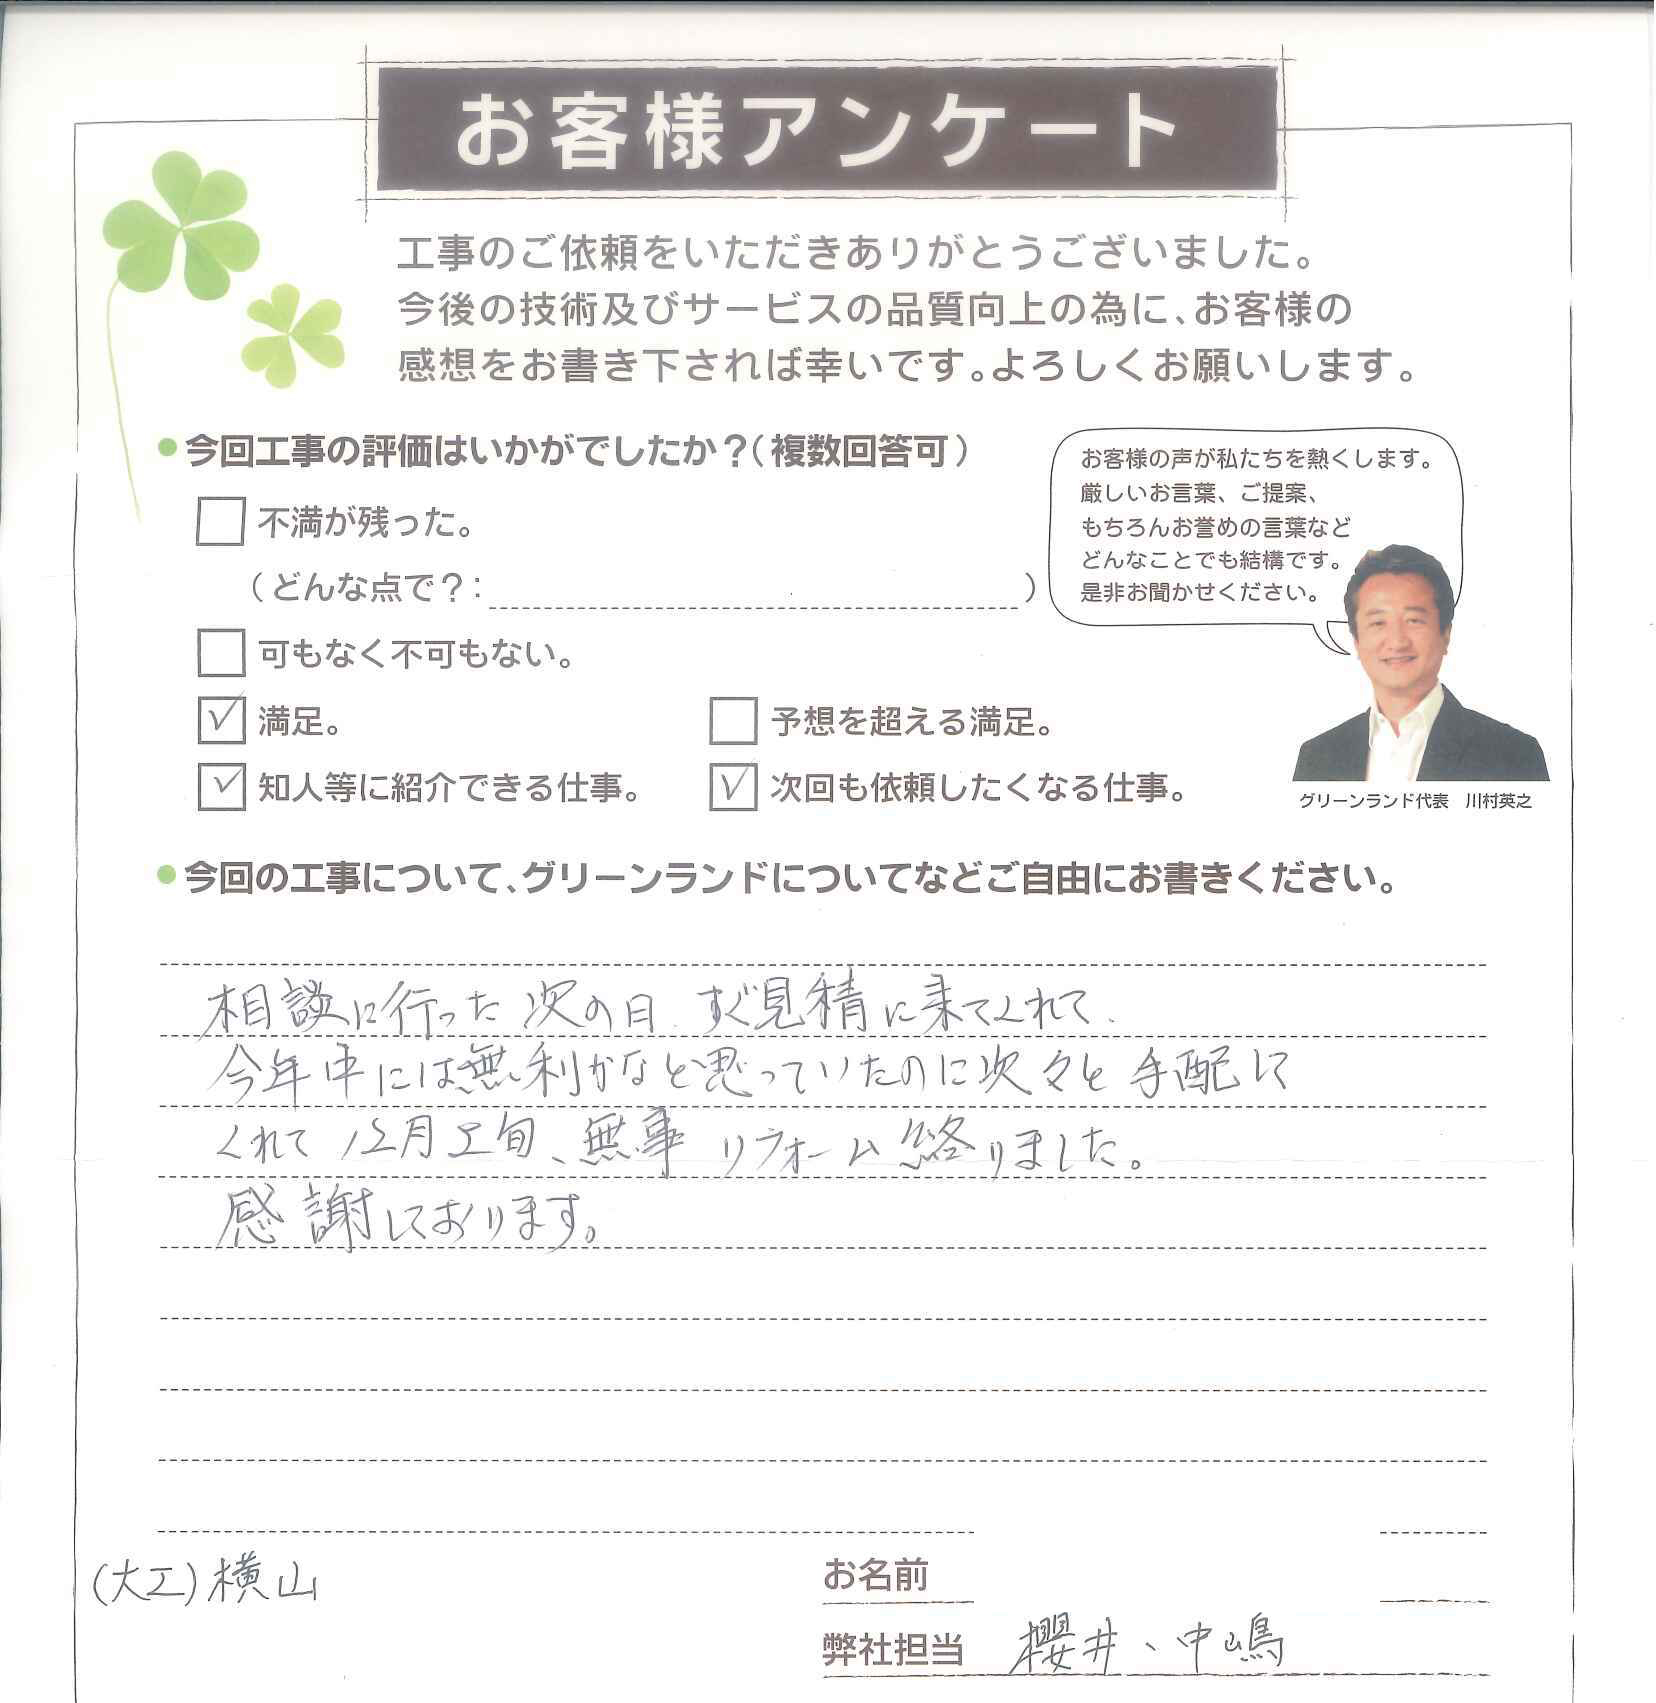 お客様アンケート
工事のご依頼をいただきありがとうございました。
今後の技術及びサービスの品質向上の為に、お客様の
感想をお書き下されば幸いです。よろしくお願いします。
今回工事の評価はいかがでしたか？（複数回答可）
不満が残った。
（どんな点で？： ）
可もなく不可もない。
満足。
予想を超える満足。
知人等に紹介できる仕事。
次回も依頼したくなる仕事。
お客様の声が私たちを熱くします。
厳しいお言葉、ご提案、
もちろんお誉めの言葉など
どんなことでも結構です。
是非お聞かせください。
グリーンランド代表　川村英之
今回の工事について、グリーンランドについてなどご自由にお書きください。
相談に行った次の日、すぐ見積に来てくれて、
今年中には無利かなと思っていたのに次々と手配して
くれて12月上旬、無事リフォーム終りました。
感謝しております。
(大工)横山
お名前
弊社担当 櫻井、中嶋